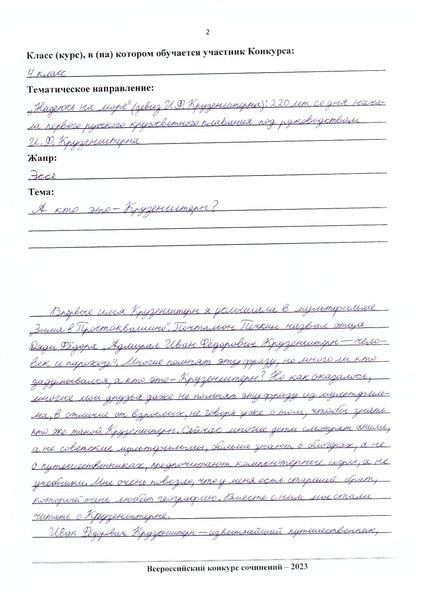 2
Класс (курс), в (на) котором обучается участник Конкурса:
4 класс
Тематическое направление:
"Надеюсь на море" (девиз И.Ф. Крузенштерна): 220 лет со дня нача-
ла первого русского кругосветного плавания под руководством
И.Ф. Крузенштерна
Жанр:
Эссе
Тема:
А кто это – Крузенштерн?
Впервые имя Крузенштерн я услышала в мультфильме
"Зима в Простоквашино". Почтальон Печкин назвал отца
Дяди Фёдора "Адмирал Иван Фёдорович Крузенштерн – чело-
век и пароход". Многие помнят эту фразу, но много ли кто
задумывался, а кто это – Крузенштерн? Но как оказалось,
многие мои друзья даже не помнят эту фразу из мультфиль-
ма, в отличие от взрослых, не говоря уже о том, чтобы знать
кто же такой Крузенштерн. Сейчас многие дети смотрят аниме,
а не советские мультфильмы, больше знают о блогерах, а не
о путешественниках, предпочитают компьютерные игры, а не
учебники. Мне очень повезло, что у меня есть старший брат,
который очень любит географию. Вместе с ним мы стали
читать о Крузенштерне.
Иван Фёдорович Крузенштерн – известнейший путешественник,
Всероссийский конкурс сочинений – 2023